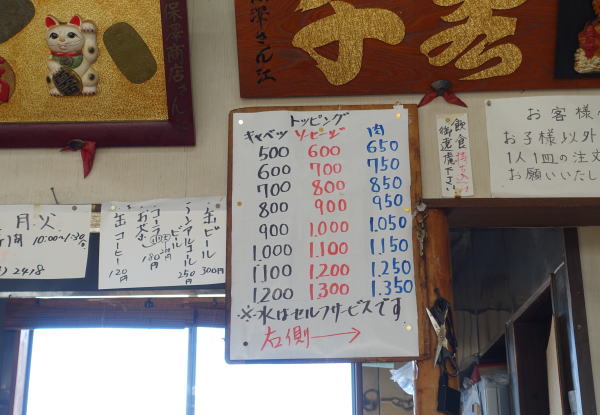 トッピング
キャベツ ソーセージ 肉
500 600 650
600 700 750
700 800 850
800 900 950
900 1.000 1.050
1.000 1.100 1.150
1.100 1.200 1.250
1.200 1.300 1.350
※水はセルフサービスです
右側→
飲食持ち込み
御遠慮下さい
お客様へ
お子様以外
1人1皿の注文
お願いいたし
缶ビール 300円
ノンアルコールビール 250円
コーラ
お茶
180円
缶コーヒー 120円
月火
10:00～1:30
2418
保澤商店さん
深さん江